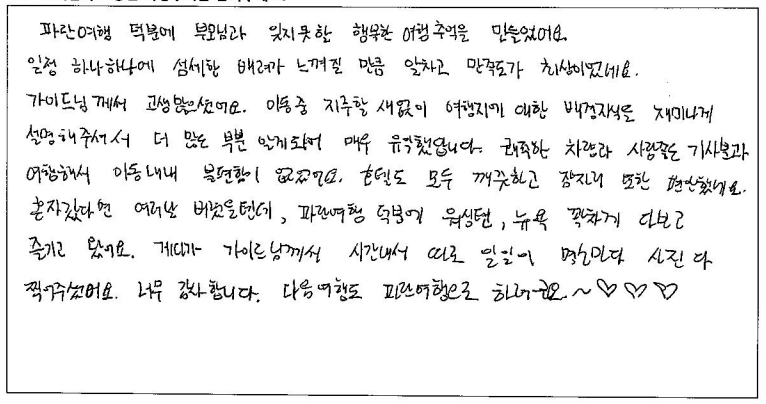 파란여행 덕분에 부모님과 잊지못할 행복한 여행추억을 만들었어요.
일정 하나하나에 섬세한 배려가 느껴질 만큼 알차고 만족도가 최상이었네요.
가이드님께서 고생많으셨어요. 이동중 지루할 새없이 여행지에 대한 배경지식을 재미나게
설명해주셔서 더 많은 부분 알게되어 매우 유익했답니다. 쾌적한 차량과 사람좋은 기사분과
여행해서 이동내내 불편함이 없었어요. 호텔도 모두 깨끗하고 잠자리 또한 편안했네요.
혼자갔다면 여러날 버렸을텐데, 파란여행 덕분에 워싱턴, 뉴욕 꽉차게 다보고
즐기고 왔어요. 게다가 가이드님께서 시간내서 따로 일일이 명소마다 사진 다
찍어주셨어요. 너무 감사합니다. 다음여행도 파란여행으로 하려구요.~♡♡♡